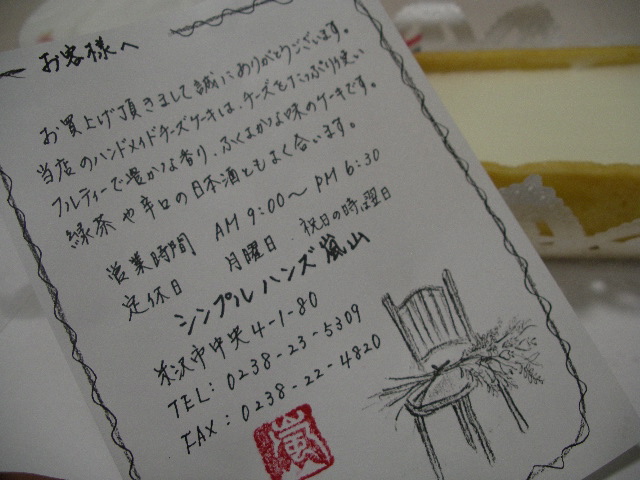 お客様へ
お買上げ頂きまして誠にありがとうございます。
当店のハンドメイドチーズケーキは、チーズをたっぷり使い
フルティーで豊かな香り、ふくよかな味のケーキです。
緑茶や辛口の日本酒ともよく合います。
営業時間 AM 9:00～PM 6:30
定休日 月曜日 祝日の時曜日
シンプルハンズ嵐山
米沢市中央4-1-80
TEL: 0238-23-5309
FAX: 0238-22-4820
嵐山